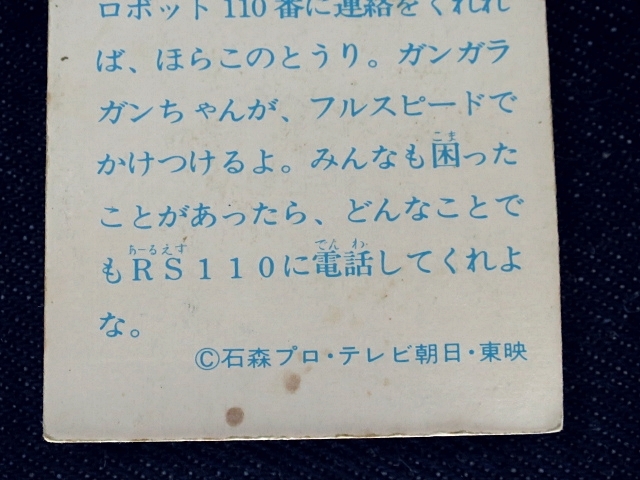 ロボット110番に連絡をくれれ
ば、ほらこのとうり。ガンガラ
ガンちゃんが、フルスピードで
かけつけるよ。みんなも困った
ことがあったら、どんなことで
もRS110に電話してくれよ
な。
©石森プロ・テレビ朝日・東映